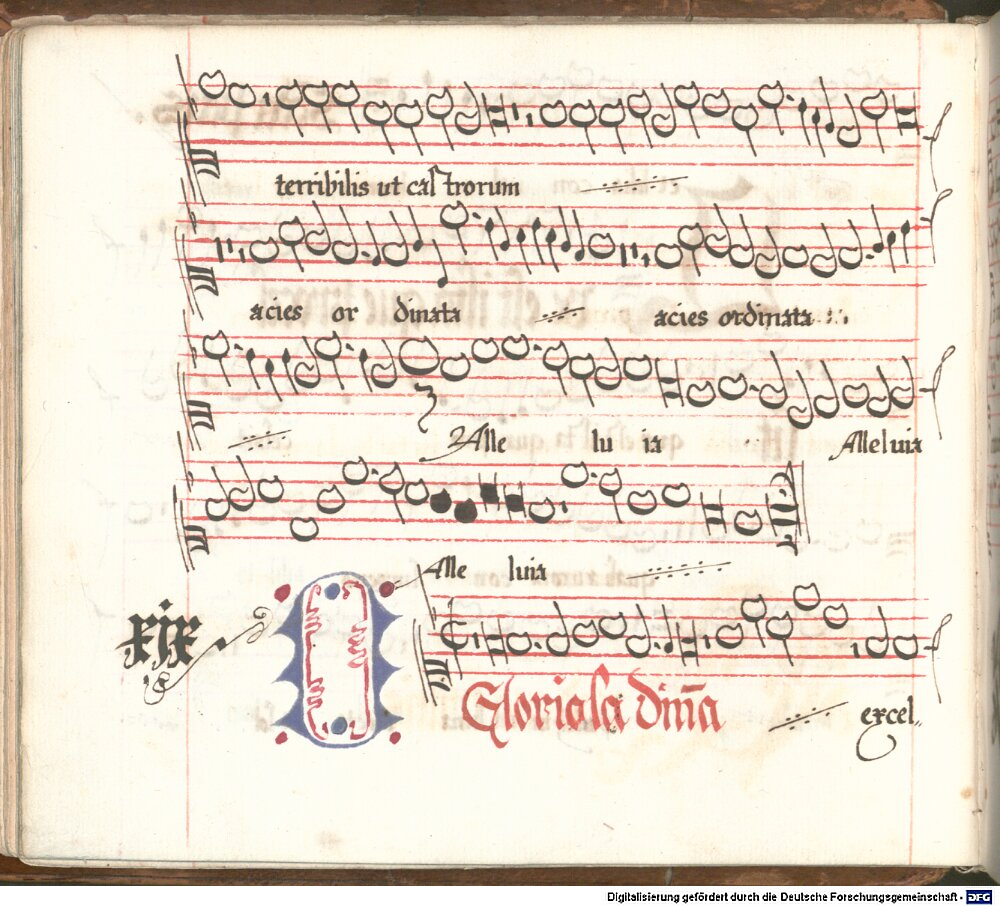 terribilis ut castrorum
acies or dinata acies ordinata
Alle lu ia Alleluia
Alle luia
xix
O Gloriosa din̄a excel
Digitalisierung gefördert durch die Deutsche Forschungsgemeinschaft - DFG